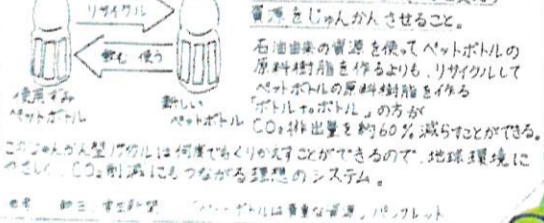 リサイクル
飲む 使う
使用ずみ
ペットボトル
新しい
ペットボトル
資源をじゅんかんさせること。
石油由来の資源を使ってペットボトルの
原料樹脂を作るよりも、リサイクルして
ペットボトルの原料樹脂を作る
「ボトルtoボトル」の方が
CO₂排出量を約60%減らすことができる。
このじゅんかん型リサイクルは何度でもくりかえすことができるので、地球環境に
やさしく、CO₂削減にもつながる理想のシステム。
ボトルは貴重な資源」パンフレット